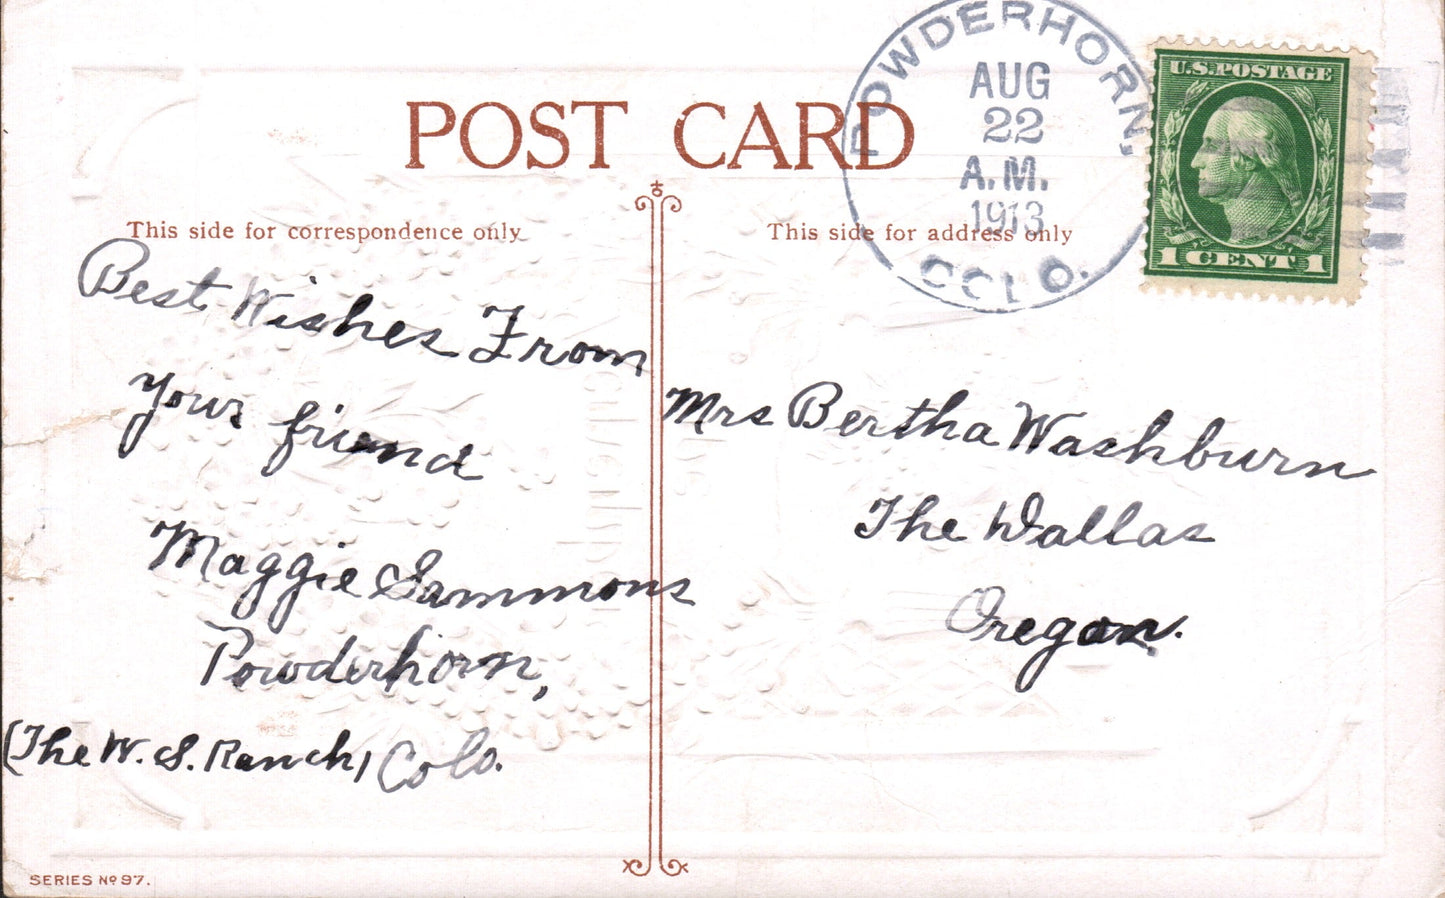 POWDERHORN,
AUG
22
A.M.
1913
COLO.
U.S. POSTAGE
1 CENT 1
POST CARD
This side for correspondence only
This side for address only
Best Wishes From
your friend
Maggie Sammons
Powderhorn,
(The W. S. Ranch) Colo.
Mrs Bertha Washburn
The Dallas
Oregon.
SERIES Nº 97.